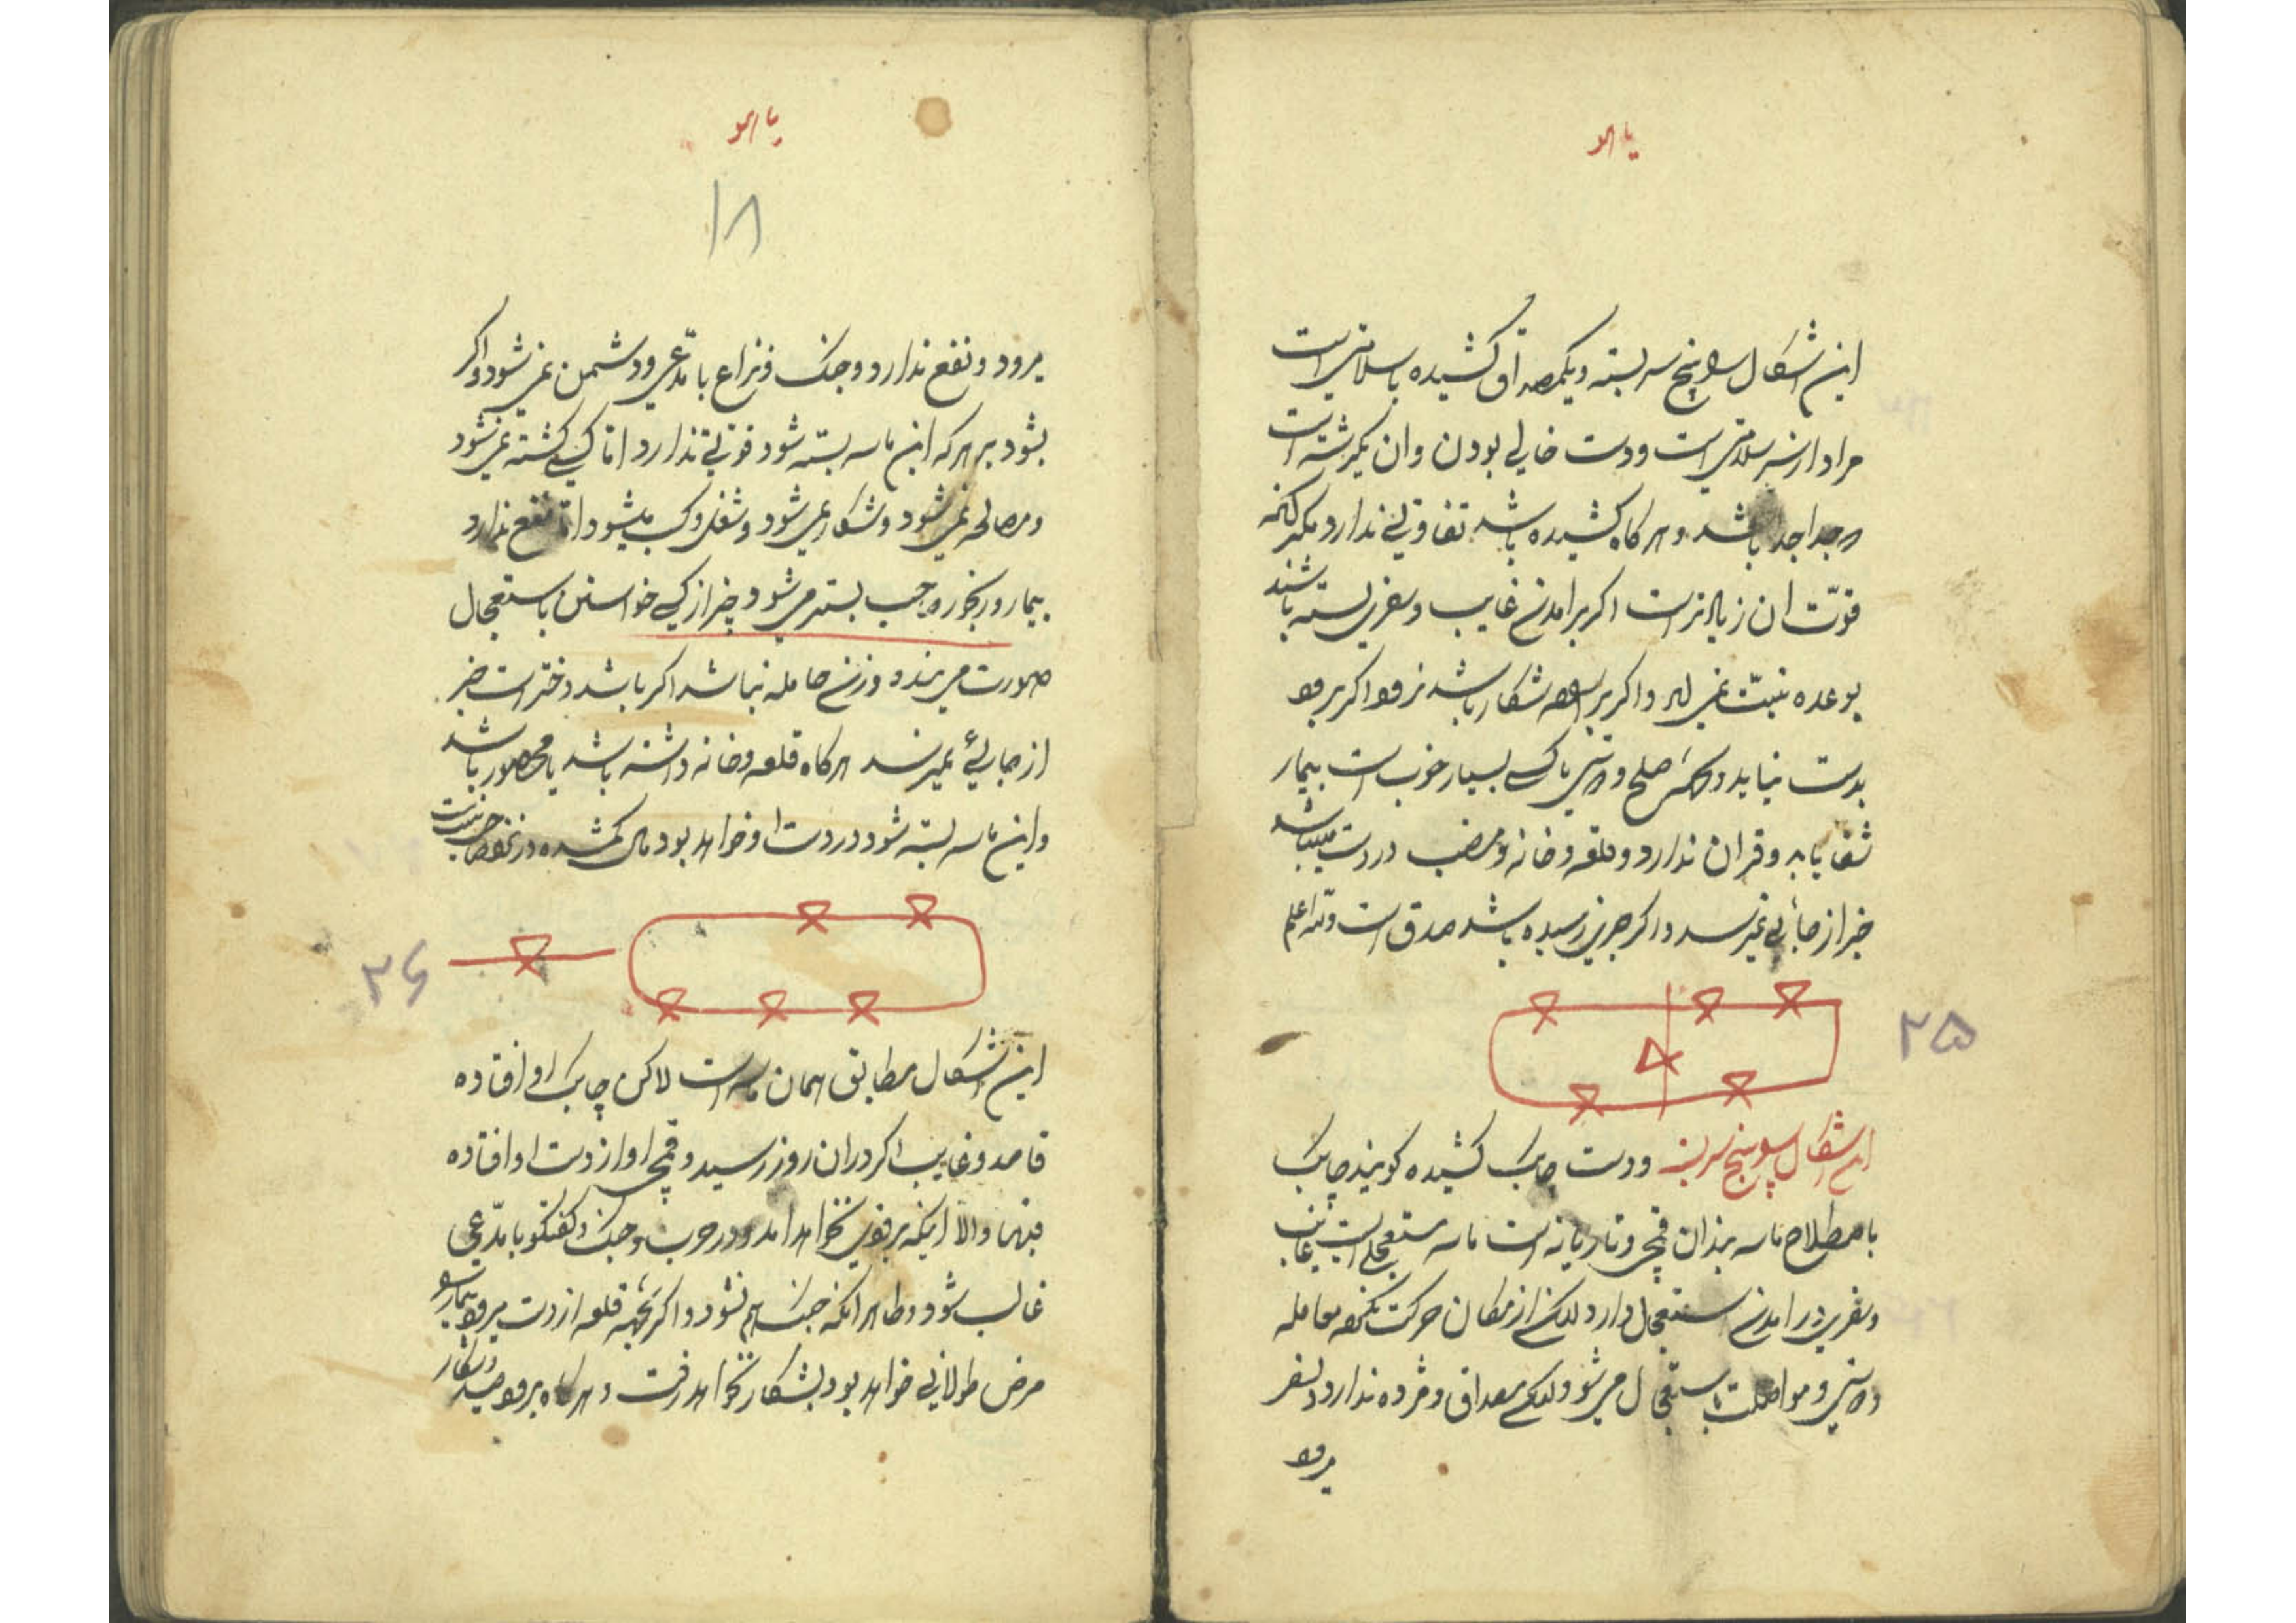 یا هو
این اشکال پنج سر بسته و یکصد اق کشیده باسلامتی است
مراد از سلامتی است و دست خالی بودن و ان یکرشته است
جدا جدا باشد و هر کاه کشیده باشد تفاوتی ندارد مکر انکه
قوّت ان زیاد تر است اکر بر امدن غایب و سفری بسته باشند
بوعده نمی اید و اکر بر شکار باشد نرود اکر برود
بدست نیاید و صلح و اشتی با کسی بسیار خوب است بیمار
شفا یابد و قران ندارد و قلعه و خانه و منصب در دست میباشد
خبر از جائی نمیرسد و اکر خبری رسیده باشد صدق است والله اعلم
۲۵
این اشکال پنج سر بسته و دست چابک کشیده کویند چابک
باصطلاح ماسه بندان قمچی و تازیانه است ماسه مستعجلی است غایب
و سفری در امدن استعجال دارد لکن از مکان حرکت نکرده معامله
و اشتی و مواصلت باستعجال می شود ولکن مصداق و مژده ندارد و سفر
میرود
یا هو
۱۸
میرود و نفع ندارد و جنک و نزاع با مدّعی و دشمن نمی شود و اکر
بشود بر هر که این ماسه بسته شود فوتی ندارد اما کسی کشته نمی شود
و مصالحه نمی شود و شکار نمی شود و شغل و کسب میشود اما نفع ندارد
بیمار و رنجور صاحب بستر می شود چیز از کسی خواستن باستعجال
صورت می بندد و زن حامله نباشد اکر باشد دختر است خبر
از جائی نمیرسد هر کاه قلعه و خانه داشته باشد یا محصور باشد
و این ماسه بسته شود در دست او خواهد بود مال کمشده در نزد صاحب نیست
۲۶
این اشکال مطابق همان ماسه است لاکن چابک او افتاده
قاصد و غایب اکر در ان روز رسید و قمچی او از دست او افتاده
فبها والا اینکه بزودی نخواهد امد و در حرب و جنک و کفتکو با مدّعی
غالب شود و ظاهر انکه جنک هم نشود و اکر بجهة قلعه از دست میرود بیمار
مرض طولانی خواهد بود بشکار نخواهد رفت و هر کاه برود صید و شکار